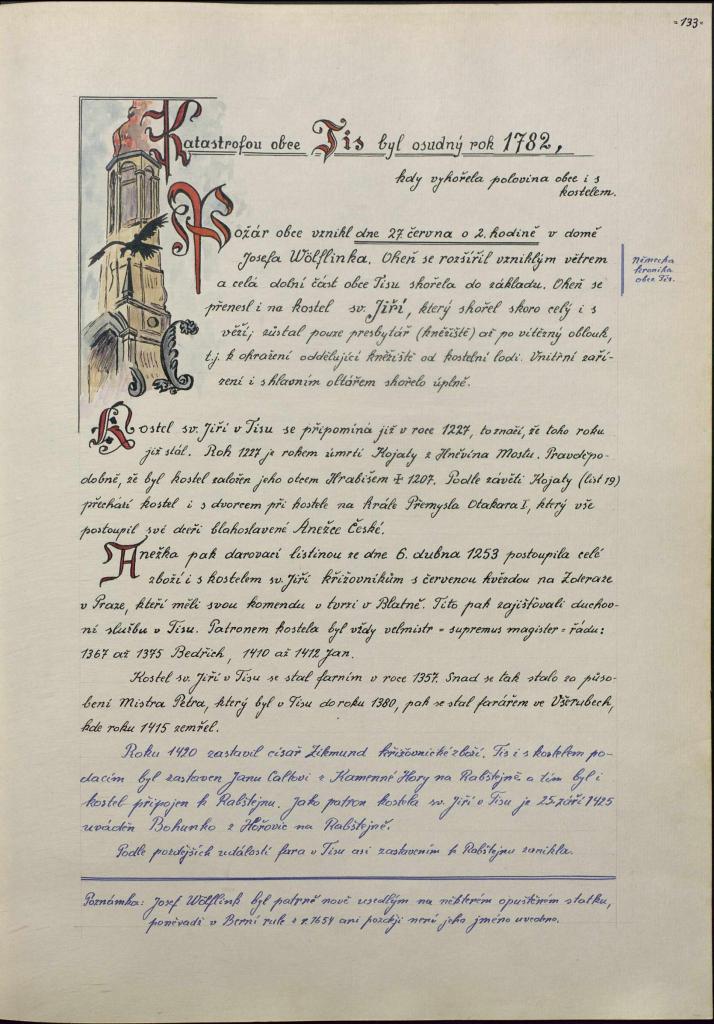 -133-
Katastrofou obce Tis byl osudný rok 1782,
kdy vykořela polovina obce i s
kostelem.
Požár obce vznikl dne 27. června o 2. hodině v domě
Josefa Wölflinka. Oheň se rozšířil vzniklým větrem
a celá dolní část obce Tisu skořela do základu. Oheň se
přenesl i na kostel sv. Jiří, který shořel skoro celý i s
věží; zůstal pouze presbytář (kněžiště) až po vítězný oblouk,
t.j. k ohražení oddělující kněžiště od kostelní lodi. Vnitřní zaří-
zení i s hlavním oltářem shořelo úplně.
Německá
kronika
obce Tis.
Kostel sv. Jiří v Tisu se připomíná již v roce 1227, to značí, že toho roku
již stál. Rok 1227 je rokem úmrtí Kojaty z Hněvína Mostu. Pravděpo-
dobně, že byl kostel založen jeho otcem Hrabišem ‡ 1207. Podle závěti Kojaty (list 19)
přechází kostel i s dvorcem při kostele na krále Přemysla Otakara I, který vše
postoupil své dceři blahoslavené Anežce České.
Anežka pak darovací listinou ze dne 6. dubna 1253 postoupila celé
zboží i s kostelem sv. Jiří křižovníkům s červenou hvězdou na Zderaze
v Praze, kteří měli svou komendu v tvrzi v Blatně. Tito pak zajišťovali duchov-
ní službu v Tisu. Patronem kostela byl vždy velmistr = supremus magister = řádu:
1367 až 1375 Bedřich, 1410 až 1412 Jan.
Kostel sv. Jiří v Tisu se stal farním v roce 1357. Snad se tak stalo za půso-
bení Mistra Petra, který byl v Tisu do roku 1380, pak se stal farářem ve Všerubech,
kde roku 1415 zemřel.
Roku 1420 zastavil císař Zikmund křižovnické zboží. Tis i s kostelem po-
dacím byl zastaven Janu Caltovi z Kamenné Hory na Rabštejně a tím byl i
kostel připojen k Rabštejnu. Jako patron kostela sv. Jiří v Tisu je 25. září 1425
uváděn Bohunko z Hořovic na Rabštejně.
Podle pozdějších událostí fara v Tisu asi zastavením k Rabštejnu zanikla.
Poznámka: Josef Wölflink byl patrně nově usedlým na některém opuštěném statku,
poněvadž v Berní rule z r. 1654 ani později není jeho jméno uvedeno.